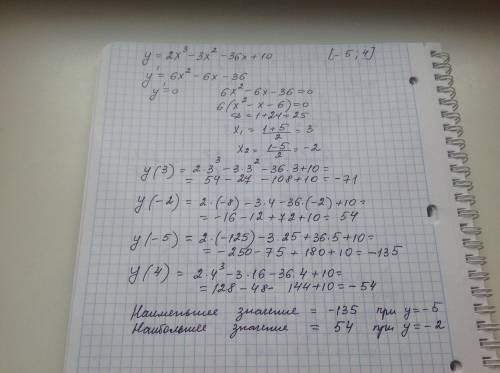 y = 2x³ - 3x² - 36x + 10 [-5; 4]
y' = 6x² - 6x - 36
y' = 0 6x² - 6x - 36 = 0
6(x² - x - 6) = 0
D = 1 + 24 = 25
x₁ = (1+5)/2 = 3
x₂ = (1-5)/2 = -2
y(3) = 2·3³ - 3·3² - 36·3 + 10 =
= 54 - 27 - 108 + 10 = -71
y(-2) = 2·(-8) - 3·4 - 36·(-2) + 10 =
= -16 - 12 + 72 + 10 = 54
y(-5) = 2·(-125) - 3·25 + 36·5 + 10 =
= -250 - 75 + 180 + 10 = -135
y(4) = 2·4³ - 3·16 - 36·4 + 10 =
= 128 - 48 - 144 + 10 = -54
Наименьшее значение = -135 при y = -5
Наибольшее значение = 54 при y = -2